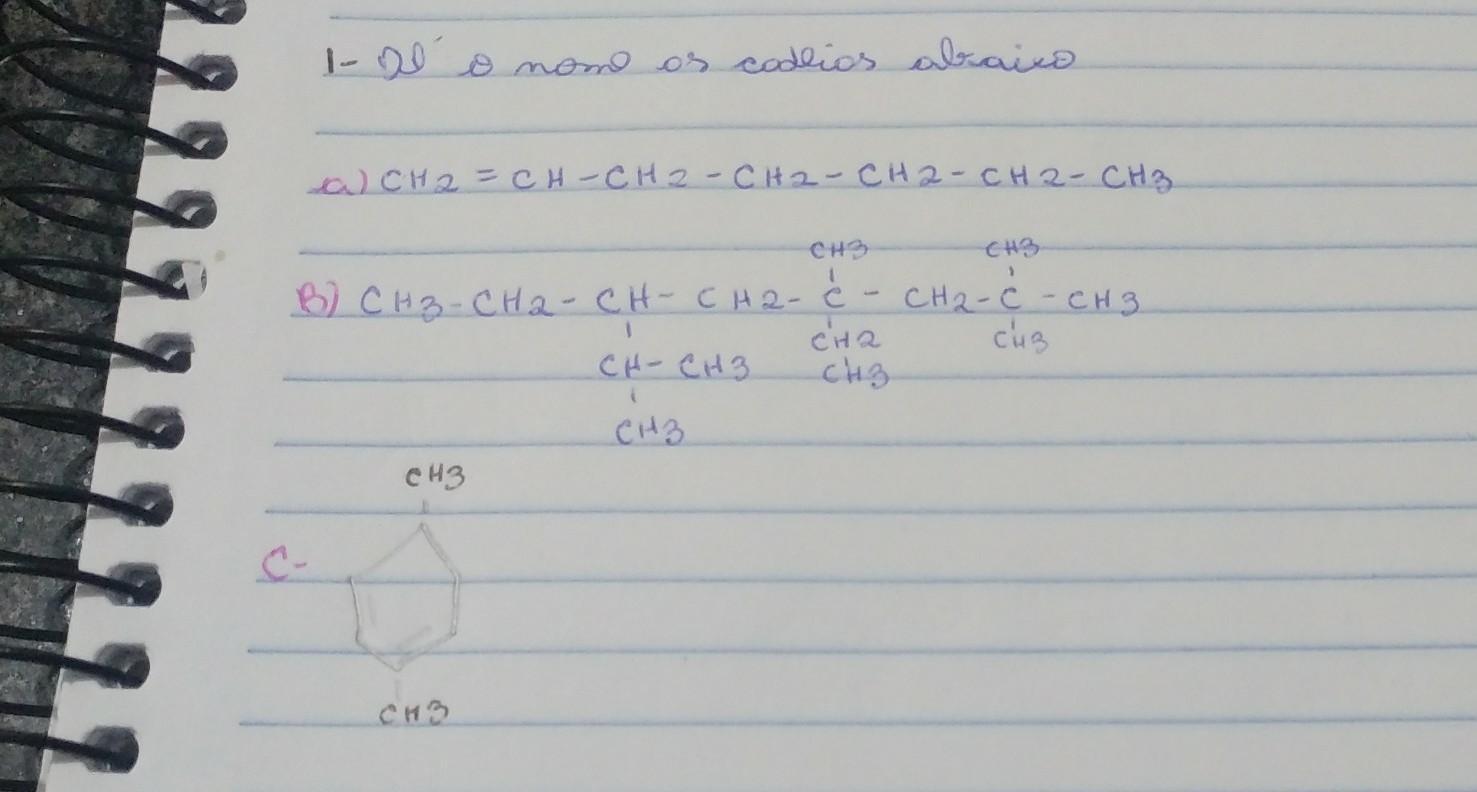 1- Dê o nome os cadeias abaixo
a) CH2 = CH - CH2 - CH2 - CH2 - CH2 - CH3
CH3 CH3
B) CH3 - CH2 - CH - CH2 - C - CH2 - C - CH3
CH2 CH3
CH - CH3 CH3
CH3
CH3
C-
CH3